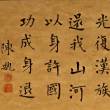 光復漢族
還我山河
以身許國
功成身退
陳魏